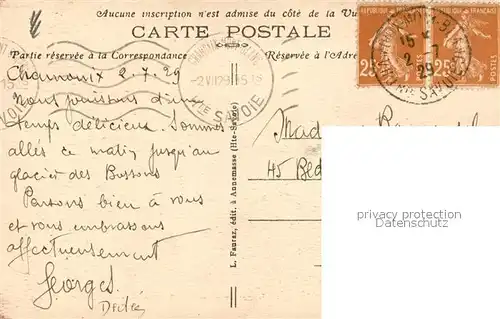 Aucune inscription n'est admise du côté de la Vu
CARTE POSTALE
Partie réservée à la Correspondance
Réservée à l'Adre
Chamonix 2.7.29
Nous jouissons d'un
temps délicieux. Sommes
allés ce matin jusqu'au
glacier des Bossons
Pensons bien à vous
et vous embrassons
affectueusement
Georges
L. Fauraz, édit. à Annemasse (Hte-Savoie)
CHAMONIX-MONT-BLANC
-2 VII 29
HTE SAVOIE
RÉPUBLIQUE FRANÇAISE
25c
POSTES
RÉPUBLIQUE FRANÇAISE
25c
POSTES
15
2 -7
29
HTE SAVOIE
Mad
45 Bed
privacy protection
Copyright